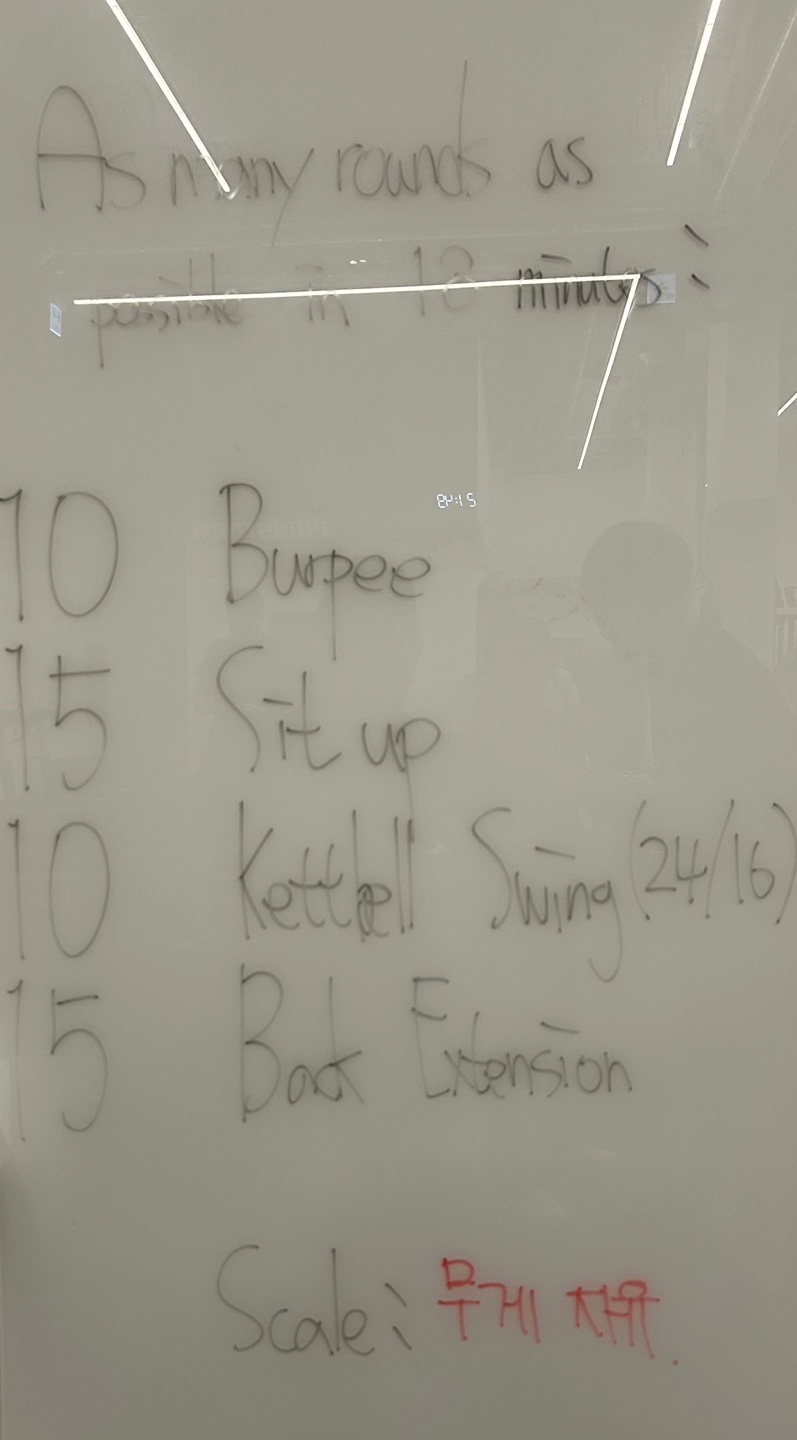 As many rounds as
possible in 18 minutes:
10 Burpee
15 Sit up
10 Kettlbell Swing (24/16)
15 Back Extension
Scale: 무게